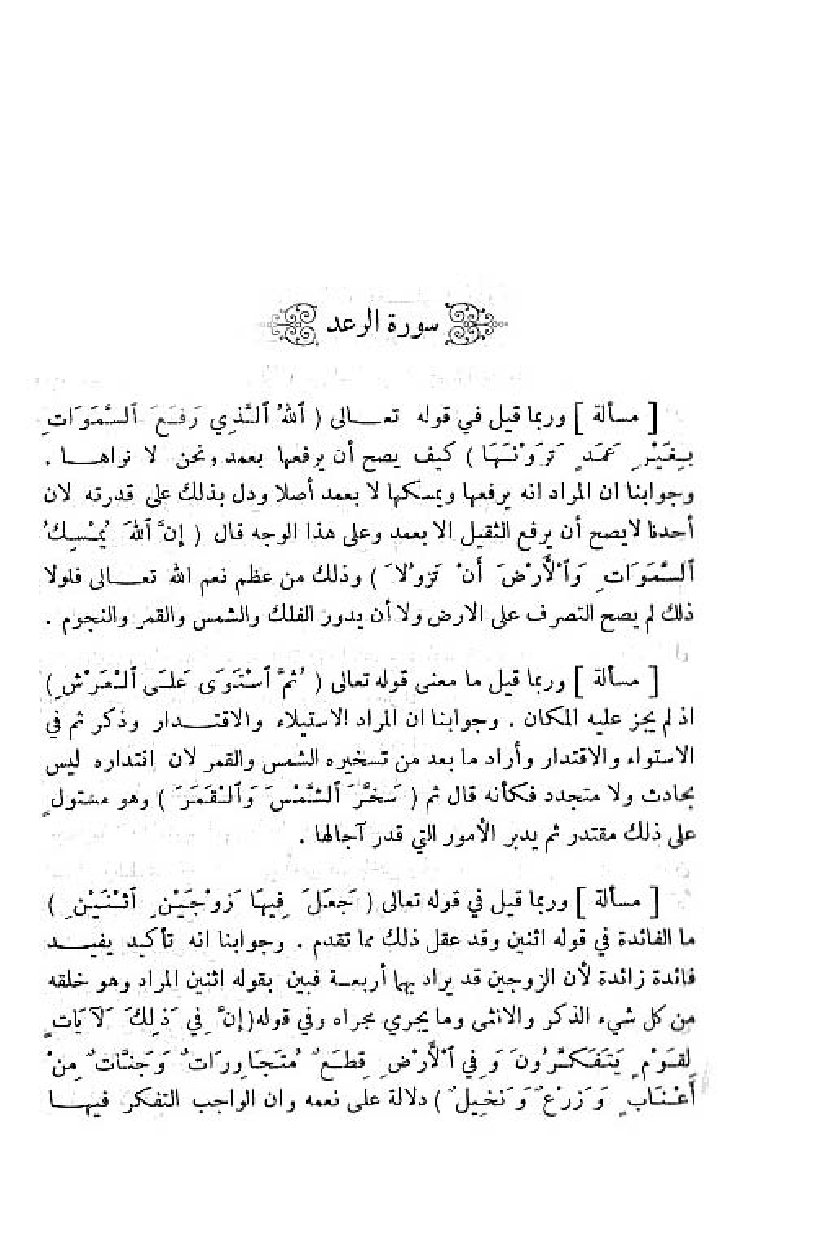 سورة الرعد
[ مسألة ] وربما قيل في قوله تعـــالى ( اَللهُ اَلَّذِي رَفَعَ اَلسَّمَوَاتِ
بِغَيْرِ عَمَدٍ تَرَوْنَهَا ) كيف يصح أن يرفعها بعمد ونحن لا نراهـــا .
وجوابنا ان المراد انه يرفعها ويمسكها لا بعمد أصلا ودل بذلك على قدرته لان
أحدنا لا يصح أن يرفع الثقيل الا بعمد وعلى هذا الوجه قال ( إِنَّ اَللهَ يُمْسِكُ
اَلسَّمَوَاتِ وَاَلْأَرْضَ أَنْ تَزُولَا ) وذلك من عظم نعم الله تعـــالى فلولا
ذلك لم يصح التصرف على الارض ولا أن يدور الفلك والشمس والقمر والنجوم .
[ مسألة ] وربما قيل ما معنى قوله تعالى ( ثُمَّ اَسْتَوَى عَلَى اَلْعَرْشِ )
اذ لم يجز عليه المكان . وجوابنا ان المراد الاستيلاء والاقتـــدار وذكر ثم في
الاستواء والاقتدار وأراد ما بعد من تسخيره الشمس والقمر لان اقتداره ليس
بحادث ولا متجدد فكأنه قال ثم ( سَخَّرَ اَلشَّمْسَ وَاَلْقَمَرَ ) وهو مستولٍ
على ذلك مقتدر ثم يدبر الأمور التي قدر آجالها .
[ مسألة ] وربما قيل في قوله تعالى ( جَعَلَ فِيهَا زَوْجَيْنِ اَثْنَيْنِ )
ما الفائدة في قوله اثنين وقد عقل ذلك مما تقدم . وجوابنا انه تأكيد يفيـــد
فائدة زائدة لأن الزوجين قد يراد بهما أربعـة فبين بقوله اثنين المراد وهو خلقه
من كل شيء الذكر والانثى وما يجري مجراه وفي قوله ( إِنَّ فِي ذَلِكَ لَآيَاتٍ
لِقَوْمٍ يَتَفَكَّرُونَ وَفِي اَلْأَرْضِ قِطَعٌ مُتَجَاوِرَاتٌ وَجَنَّاتٌ مِنْ
أَعْنَابٍ وَزَرْعٌ وَنَخِيلٌ ) دلالة على نعمه وان الواجب التفكر فيهـــا